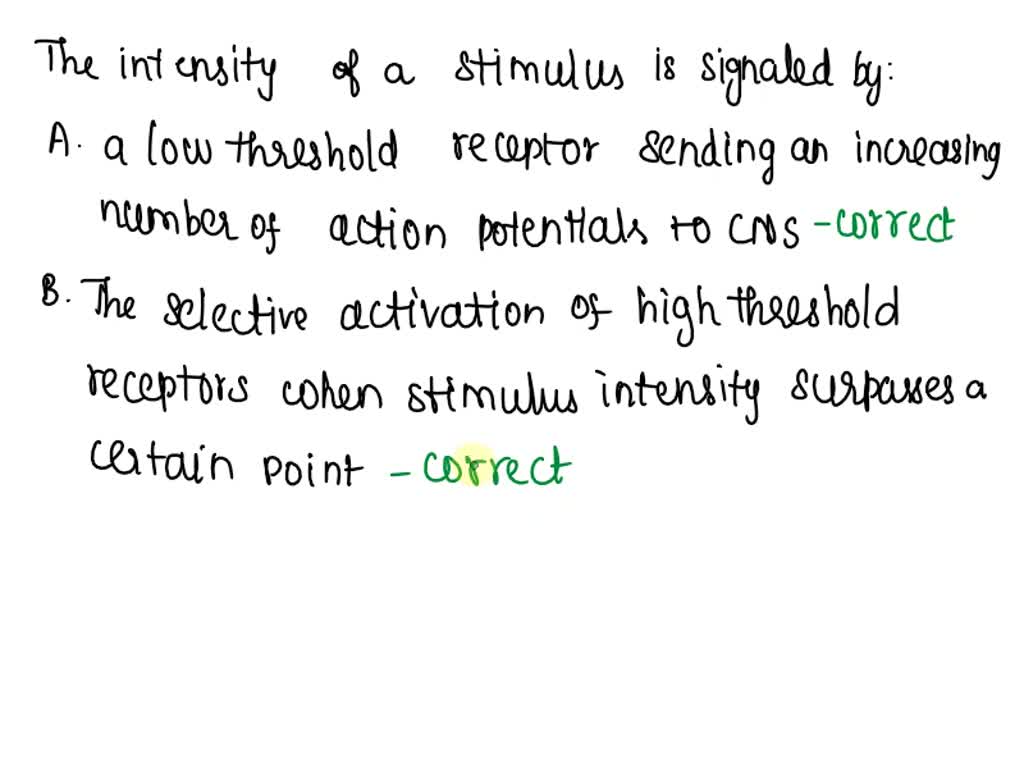 The intensity of a stimulus is signaled by:
A. a low threshold receptor sending an increasing
number of action potentials to CNS - correct
B. The selective activation of high threshold
receptors cohen stimulus intensity surpasses a
certain point - correct